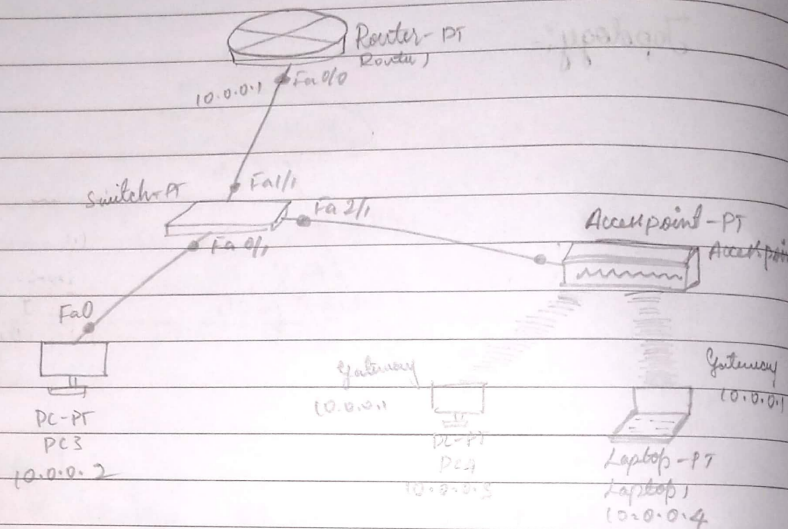 Router-PT
Router1
Fa0/0
10.0.0.1
Fa1/1
Switch-PT
Fa2/1
Fa0/1
Accesspoint-PT
Fa0
Gateway
10.0.0.1
Gateway
10.0.0.1
PC-PT
PC3
10.0.0.2
PC-PT
PC4
10.0.0.3
Laptop-PT
Laptop1
10.0.0.4